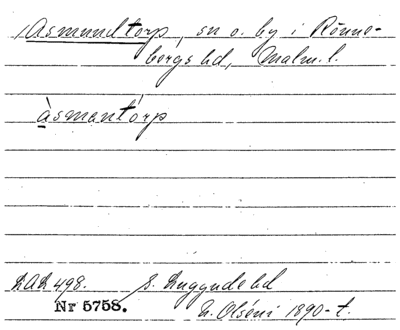 Asmundtorp, sn o. by i Rönne-
bergs hd, Malm. l.
àsmantórp
LAL 498. S. Luggude hd
Nr 5758.
N. Olséni 1890-t.